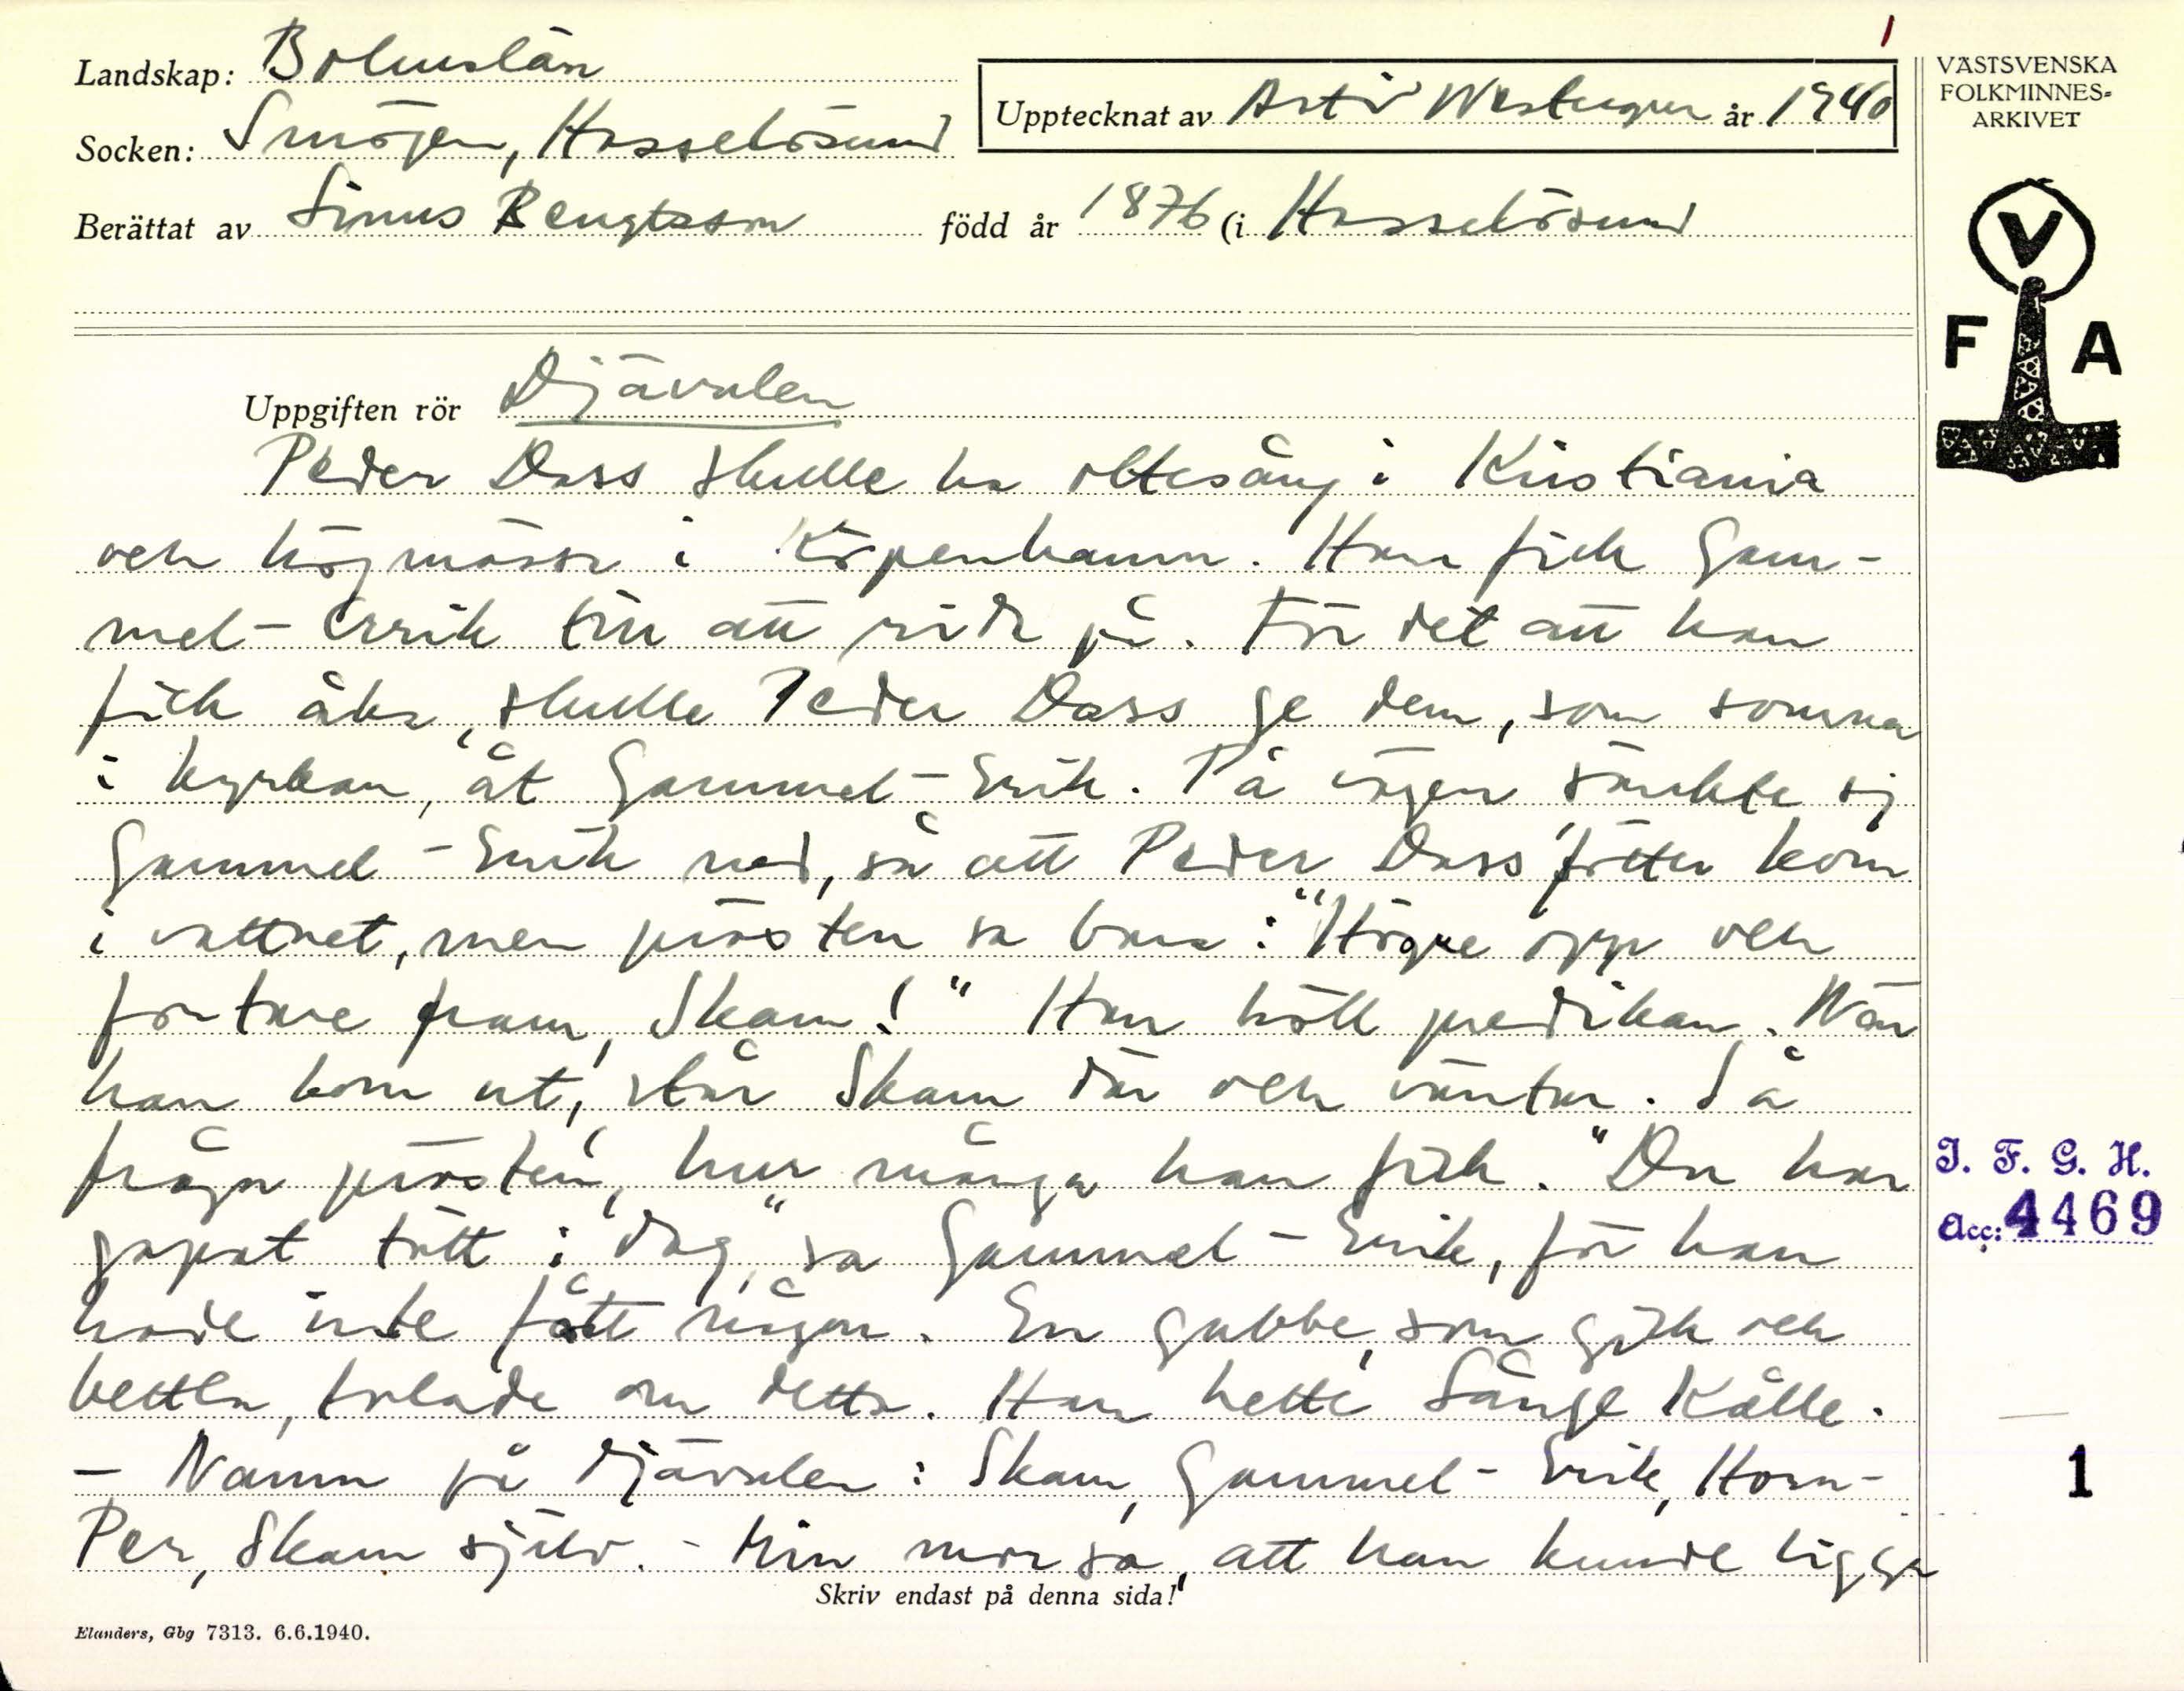 1
Landskap: Bohuslän
Upptecknat av Arvid Westergren år 1940
Socken: Smögen, Hasselösund
Berättat av Linus Bengtsson född år 1876 (i Hasselösund
VÄSTSVENSKA
FOLKMINNES-
ARKIVET
V
F A
Uppgiften rör Djävulen
Peder Dass skulle ha ottesång i Kristiania
och högmässa i Köpenhamn. Han fick Gam-
mel-Errik till att rida på. För det att han
fick åka, skulle Peder Dass ge dem, som somna
i kyrkan, åt Gammel-Erik. På vägen sänkte sig
Gammel-Erik ned, så att Peder Dass' fötter kom
i vattnet, men prästen sa bara: "Högre opp och
fortare fram, Skam!" Han höll predikan. När
han kom ut, står Skam där och väntar. Så
fråga prästen, hur många han fick. "Du har
gapat tätt i dag," sa Gammel-Erik, för han
hade inte fått någon. En gubbe, som gick och
bettla, talade om detta. Han hette Sånge Kålle.
- Namn på djävulen: Skam, Gammel-Erik, Horn-
Per, Skam själv. - Min mor sa, att han kunde ligga
I. F. G. H.
Acc: 4469
1
Skriv endast på denna sida!
Elanders, Gbg 7313. 6.6.1940.